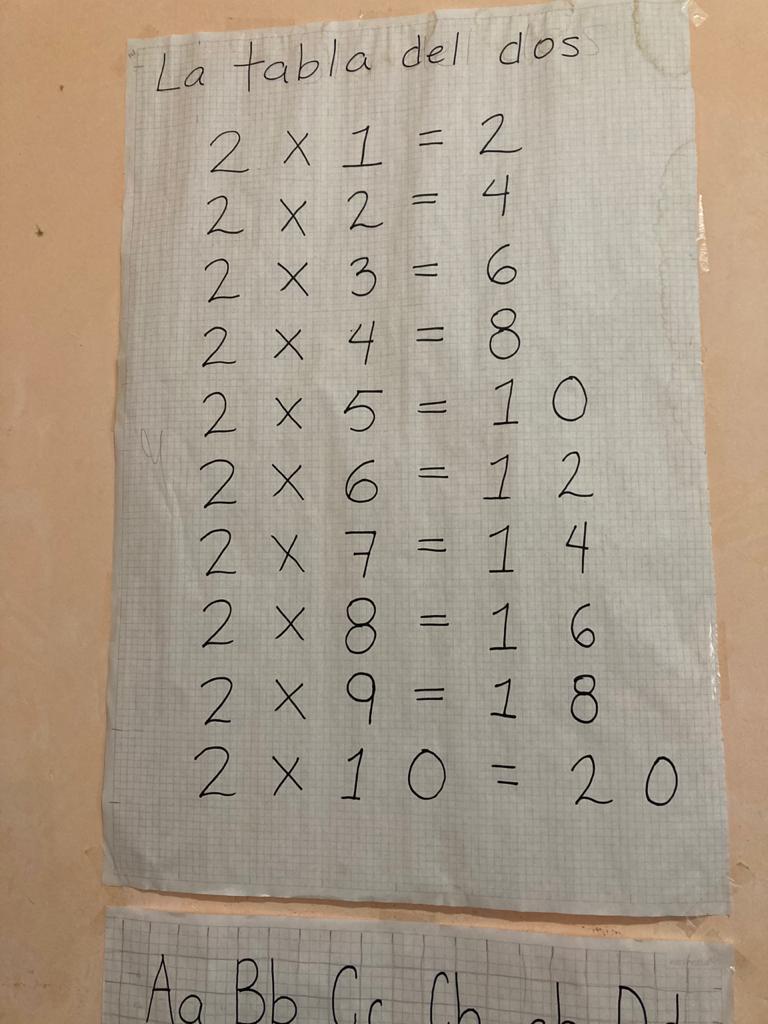 La tabla del dos
2 x 1 = 2
2 x 2 = 4
2 x 3 = 6
2 x 4 = 8
2 x 5 = 1 0
2 x 6 = 1 2
2 x 7 = 1 4
2 x 8 = 1 6
2 x 9 = 1 8
2 x 1 0 = 2 0
Aa Bb Cc Ch ch Dd